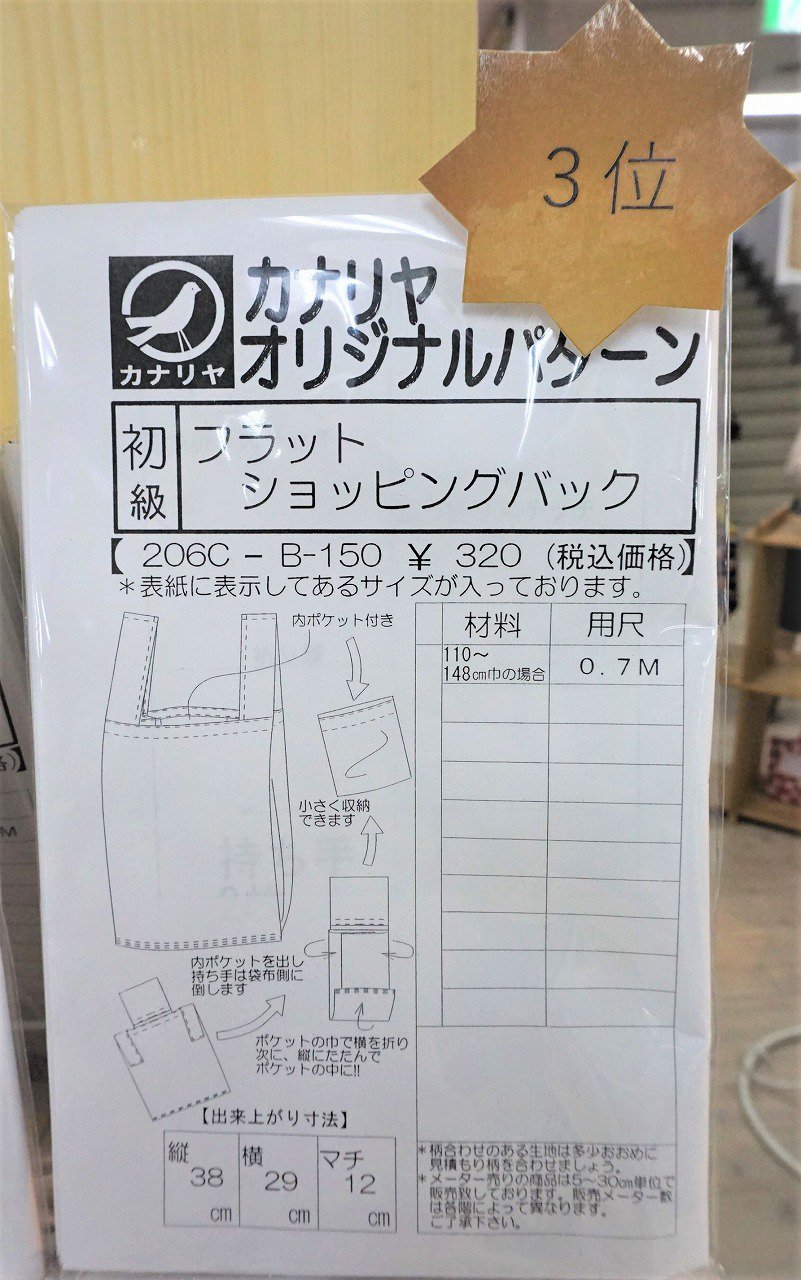 3位
カナリヤ
カナリヤ
オリジナルパターン
初級
フラット
ショッピングバック
【 206C - B-150 ¥ 320 (税込価格)】
*表紙に表示してあるサイズが入っております。
内ポケット付き
材料 用尺
110～
148cm巾の場合 0.7M
小さく収納
できます
内ポケットを出し
持ち手は袋布側に
倒します
ポケットの巾で横を折り
次に、縦にたたんで
ポケットの中に!!
【出来上がり寸法】
縦 横 マチ
38 29 12
cm cm cm
*柄合わせのある生地は多少おおめに
見積もり柄を合わせましょう。
*メーター売りの商品は5～30cm単位で
販売致しております。販売メーター数
は各階によって異なります。
ご了承下さい。